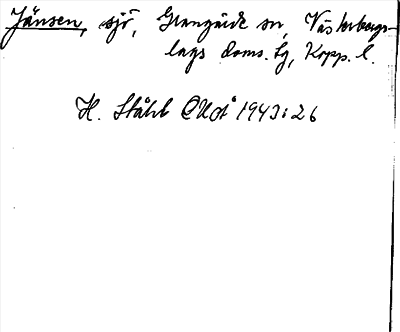 Jänsen, sjö, Grangärde sn, Västerbergs-
lags doms. tg, Kopp. l.
H. Ståhl ONOÅ 1943:26